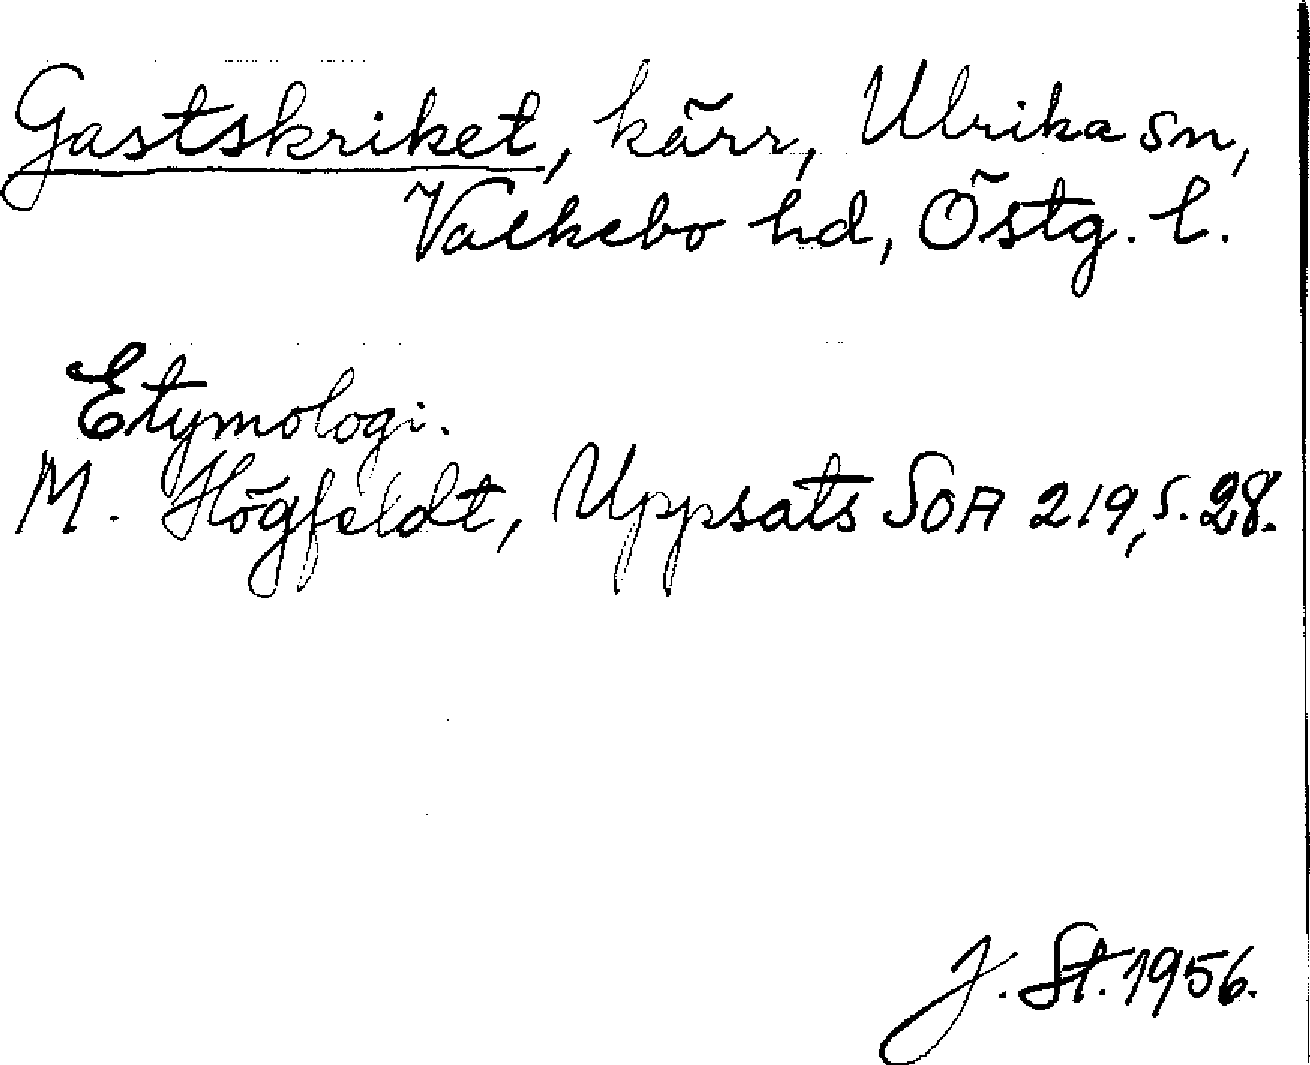 Gastskriket, kärr, Ulrika sn,
Valkebo hd, Östg. l.
Etymologi.
M. Högfeldt, Uppsats SOA 219, s. 28.
J. St. 1956.